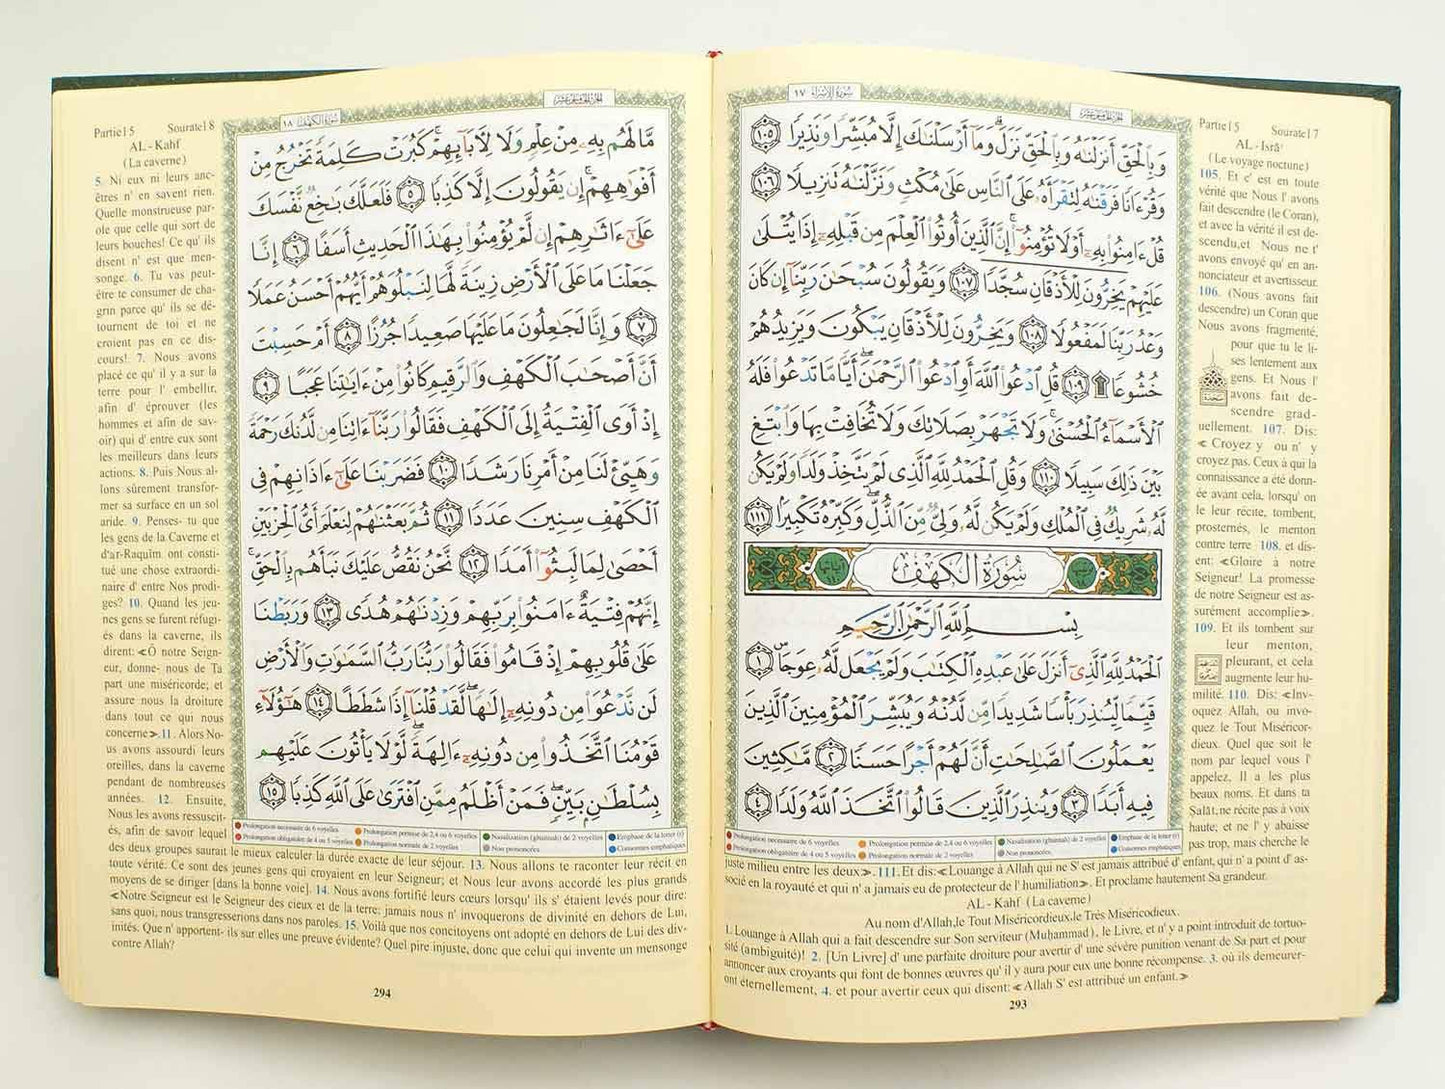 سُورَةُ الإِسْرَاءِ ١٧
الجزء الخامس عشر
وَبِٱلْحَقِّ أَنزَلْنَٰهُ وَبِٱلْحَقِّ نَزَلَ ۗ وَمَآ أَرْسَلْنَٰكَ إِلَّا مُبَشِّرًا وَنَذِيرًا ١٠٥
وَقُرْءَانًا فَرَقْنَٰهُ لِتَقْرَأَهُۥ عَلَى ٱلنَّاسِ عَلَىٰ مُكْثٍ وَنَزَّلْنَٰهُ تَنزِيلًا ١٠٦
قُلْ ءَامِنُوا۟ بِهِۦٓ أَوْ لَا تُؤْمِنُوٓا۟ ۚ إِنَّ ٱلَّذِينَ أُوتُوا۟ ٱلْعِلْمَ مِن قَبْلِهِۦٓ إِذَا يُتْلَىٰ
عَلَيْهِمْ يَخِرُّونَ لِلْأَذْقَانِ سُجَّدًا ١٠٧ وَيَقُولُونَ سُبْحَٰنَ رَبِّنَآ إِن كَانَ
وَعْدُ رَبِّنَا لَمَفْعُولًا ١٠٨ وَيَخِرُّونَ لِلْأَذْقَانِ يَبْكُونَ وَيَزِيدُهُمْ
خُشُوعًا ۩ ١٠٩ قُلِ ٱدْعُوا۟ ٱللَّهَ أَوِ ٱدْعُوا۟ ٱلرَّحْمَٰنَ ۖ أَيًّا مَّا تَدْعُوا۟ فَلَهُ
ٱلْأَسْمَآءُ ٱلْحُسْنَىٰ ۚ وَلَا تَجْهَرْ بِصَلَاتِكَ وَلَا تُخَافِتْ بِهَا وَٱبْتَغِ
بَيْنَ ذَٰلِكَ سَبِيلًا ١١٠ وَقُلِ ٱلْحَمْدُ لِلَّهِ ٱلَّذِى لَمْ يَتَّخِذْ وَلَدًا وَلَمْ يَكُن
لَّهُۥ شَرِيكٌ فِى ٱلْمُلْكِ وَلَمْ يَكُن لَّهُۥ وَلِىٌّ مِّنَ ٱلذُّلِّ ۖ وَكَبِّرْهُ تَكْبِيرًۢا ١١١
سُورَةُ الكَهْفِ
بِسْمِ ٱللَّهِ ٱلرَّحْمَٰنِ ٱلرَّحِيمِ
ٱلْحَمْدُ لِلَّهِ ٱلَّذِىٓ أَنزَلَ عَلَىٰ عَبْدِهِ ٱلْكِتَٰبَ وَلَمْ يَجْعَل لَّهُۥ عِوَجَا ۜ ١
قَيِّمًا لِّيُنذِرَ بَأْسًا شَدِيدًا مِّن لَّدُنْهُ وَيُبَشِّرَ ٱلْمُؤْمِنِينَ ٱلَّذِينَ
يَعْمَلُونَ ٱلصَّٰلِحَٰتِ أَنَّ لَهُمْ أَجْرًا حَسَنًا ٢ مَّٰكِثِينَ
فِيهِ أَبَدًا ٣ وَيُنذِرَ ٱلَّذِينَ قَالُوا۟ ٱتَّخَذَ ٱللَّهُ وَلَدًا ٤
Prolongation nécessaire de 6 voyelles
Prolongation permise de 2,4 ou 6 voyelles
Nasalisation (ghunnah) de 2 voyelles
Emphase de la lettre (r)
Prolongation obligatoire de 4 ou 5 voyelles
Prolongation normale de 2 voyelles
Non prononcées
Consonnes emphatiques
Partie15 Sourate17
AL - Isrâ'
(Le voyage nocturne)
105. Et c' est en toute
vérité que Nous l' avons
fait descendre (le Coran),
et avec la vérité il est des-
cendu,et Nous ne t'
avons envoyé qu' en an-
nonciateur et avertisseur.
106. (Nous avons fait
descendre) un Coran que
Nous avons fragmenté,
pour que tu le li-
ses lentement aux
gens. Et Nous l'
avons fait de-
scendre grad-
uellement. 107. Dis:
« Croyez y ou n' y
croyez pas. Ceux à qui la
connaissance a été donn-
ée avant cela, lorsqu' on
le leur récite, tombent,
prosternés, le menton
contre terre 108. et dis-
ent: «Gloire à notre
Seigneur! La promesse
de notre Seigneur est as-
surément accomplie».
109. Et ils tombent sur
leur menton,
pleurant, et cela
augmente leur hu-
milité. 110. Dis: «Inv-
oquez Allah, ou invo-
quez le Tout Miséricor-
dieux. Quel que soit le
nom par lequel vous l'
appelez, Il a les plus
beaux noms. Et dans ta
Ṣalât,ne récite pas à voix
haute; et ne l' y abaisse
pas trop, mais cherche le
juste milieu entre les deux».111.Et dis:«Louange à Allah qui ne S' est jamais attribué d' enfant, qui n' a point d' as-
socié en la royauté et qui n' a jamais eu de protecteur de l' humiliation». Et proclame hautement Sa grandeur.
AL - Kahf (La caverne)
Au nom d'Allah,le Tout Miséricordieux,le Très Miséricordieux.
1. Louange à Allah qui a fait descendre sur Son serviteur (Muḥammad), le Livre, et n' y a point introduit de tortuo-
sité (ambiguïté)! 2. [Un Livre] d' une parfaite droiture pour avertir d' une sévère punition venant de Sa part et pour
annoncer aux croyants qui font de bonnes œuvres qu' il y aura pour eux une bonne récompense. 3. où ils demeurer-
ont éternellement, 4. et pour avertir ceux qui disent:«Allah S' est attribué un enfant.»
293
الجزء الخامس عشر
سُورَةُ الكَهْفِ ١٨
مَّا لَهُم بِهِۦ مِنْ عِلْمٍ وَلَا لِءَابَآئِهِمْ ۚ كَبُرَتْ كَلِمَةً تَخْرُجُ مِنْ
أَفْوَٰهِهِمْ ۚ إِن يَقُولُونَ إِلَّا كَذِبًا ٥ فَلَعَلَّكَ بَٰخِعٌ نَّفْسَكَ
عَلَىٰٓ ءَاثَٰرِهِمْ إِن لَّمْ يُؤْمِنُوا۟ بِهَٰذَا ٱلْحَدِيثِ أَسَفًا ٦ إِنَّا
جَعَلْنَا مَا عَلَى ٱلْأَرْضِ زِينَةً لَّهَا لِنَبْلُوَهُمْ أَيُّهُمْ أَحْسَنُ عَمَلًا
٧ وَإِنَّا لَجَٰعِلُونَ مَا عَلَيْهَا صَعِيدًا جُرُزًا ٨ أَمْ حَسِبْتَ
أَنَّ أَصْحَٰبَ ٱلْكَهْفِ وَٱلرَّقِيمِ كَانُوا۟ مِنْ ءَايَٰتِنَا عَجَبًا ٩
إِذْ أَوَى ٱلْفِتْيَةُ إِلَى ٱلْكَهْفِ فَقَالُوا۟ رَبَّنَآ ءَاتِنَا مِن لَّدُنكَ رَحْمَةً
وَهَيِّئْ لَنَا مِنْ أَمْرِنَا رَشَدًا ١٠ فَضَرَبْنَا عَلَىٰٓ ءَاذَانِهِمْ فِى
ٱلْكَهْفِ سِنِينَ عَدَدًا ١١ ثُمَّ بَعَثْنَٰهُمْ لِنَعْلَمَ أَىُّ ٱلْحِزْبَيْنِ
أَحْصَىٰ لِمَا لَبِثُوٓا۟ أَمَدًا ١٢ نَّحْنُ نَقُصُّ عَلَيْكَ نَبَأَهُم بِٱلْحَقِّ ۚ
إِنَّهُمْ فِتْيَةٌ ءَامَنُوا۟ بِرَبِّهِمْ وَزِدْنَٰهُمْ هُدًى ١٣ وَرَبَطْنَا
عَلَىٰ قُلُوبِهِمْ إِذْ قَامُوا۟ فَقَالُوا۟ رَبُّنَا رَبُّ ٱلسَّمَٰوَٰتِ وَٱلْأَرْضِ
لَن نَّدْعُوَا۟ مِن دُونِهِۦٓ إِلَٰهًا ۖ لَّقَدْ قُلْنَآ إِذًا شَطَطًا ١٤ هَٰٓؤُلَآءِ
قَوْمُنَا ٱتَّخَذُوا۟ مِن دُونِهِۦٓ ءَالِهَةً ۖ لَّوْلَا يَأْتُونَ عَلَيْهِم
بِسُلْطَٰنٍۭ بَيِّنٍ ۖ فَمَنْ أَظْلَمُ مِمَّنِ ٱفْتَرَىٰ عَلَى ٱللَّهِ كَذِبًا ١٥
Prolongation nécessaire de 6 voyelles
Prolongation permise de 2,4 ou 6 voyelles
Nasalisation (ghunnah) de 2 voyelles
Emphase de la lettre (r)
Prolongation obligatoire de 4 ou 5 voyelles
Prolongation normale de 2 voyelles
Non prononcées
Consonnes emphatiques
Partie15 Sourate18
AL - Kahf
(La caverne)
5. Ni eux ni leurs anc-
êtres n' en savent rien.
Quelle monstrueuse par-
ole que celle qui sort de
leurs bouches! Ce qu' ils
disent n' est que men-
songe. 6. Tu vas peut-
être te consumer de cha-
grin parce qu' ils se dé-
tournent de toi et ne
croient pas en ce dis-
cours! 7. Nous avons
placé ce qu' il y a sur la
terre pour l' embellir,
afin d' éprouver (les
hommes et afin de sav-
oir) qui d' entre eux sont
les meilleurs dans leurs
actions. 8. Puis Nous al-
lons sûrement transfor-
mer sa surface en un sol
aride. 9. Penses- tu que
les gens de la Caverne et
d'ar-Raquîm ont consti-
tué une chose extraordi-
naire d' entre Nos prodi-
ges? 10. Quand les jeu-
nes gens se furent réfugi-
és dans la caverne, ils
dirent:«Ô notre Seign-
eur, donne- nous de Ta
part une miséricorde; et
assure nous la droiture
dans tout ce qui nous
concerne».11. Alors No-
us avons assourdi leurs
oreilles, dans la caverne
pendant de nombreuses
années. 12. Ensuite,
Nous les avons ressuscit-
és, afin de savoir lequel
des deux groupes saurait le mieux calculer la durée exacte de leur séjour. 13. Nous allons te raconter leur récit en
toute vérité. Ce sont des jeunes gens qui croyaient en leur Seigneur; et Nous leur avons accordé les plus grands
moyens de se diriger [dans la bonne voie]. 14. Nous avons fortifié leurs cœurs lorsqu' ils s' étaient levés pour dire:
«Notre Seigneur est le Seigneur des cieux et de la terre: jamais nous n' invoquerons de divinité en dehors de Lui,
sans quoi, nous transgresserions dans nos paroles. 15. Voilà que nos concitoyens ont adopté en dehors de Lui des div-
inités. Que n' apportent- ils sur elles une preuve évidente? Quel pire injuste, donc que celui qui invente un mensonge
contre Allah?
294